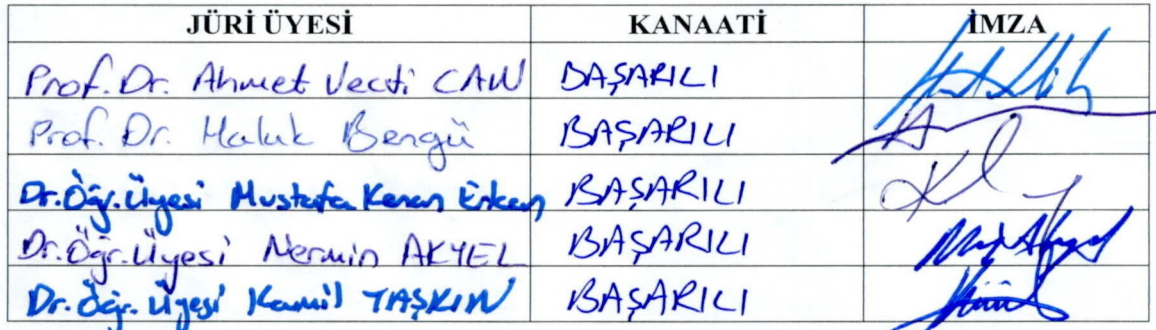 JÜRİ ÜYESİ KANAATİ İMZA
Prof. Dr. Ahmet Vecti CAN BAŞARILI
Prof. Dr. Haluk Bengü BAŞARILI
Dr. Öğr. Üyesi Mustafa Kenan Erkan BAŞARILI
Dr. Öğr. Üyesi Nermin AKYEL BAŞARILI
Dr. Öğr. Üyesi Kamil TAŞKIN BAŞARILI